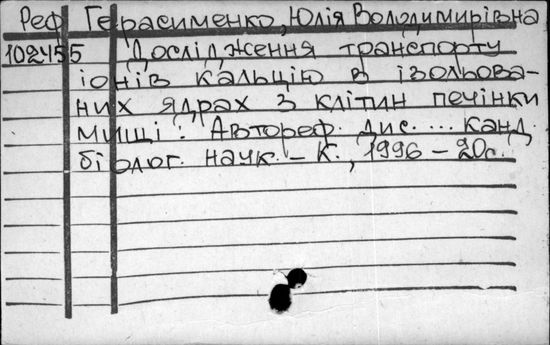 Реф Герасименко, Юлія Володимирівна
102455 Дослідження транспорту
іонів кальцію в ізольова-
них ядрах з клітин печінки
миші : Автореф. дис. ... канд.
біолог. наук. – К., 1996 – 20с.